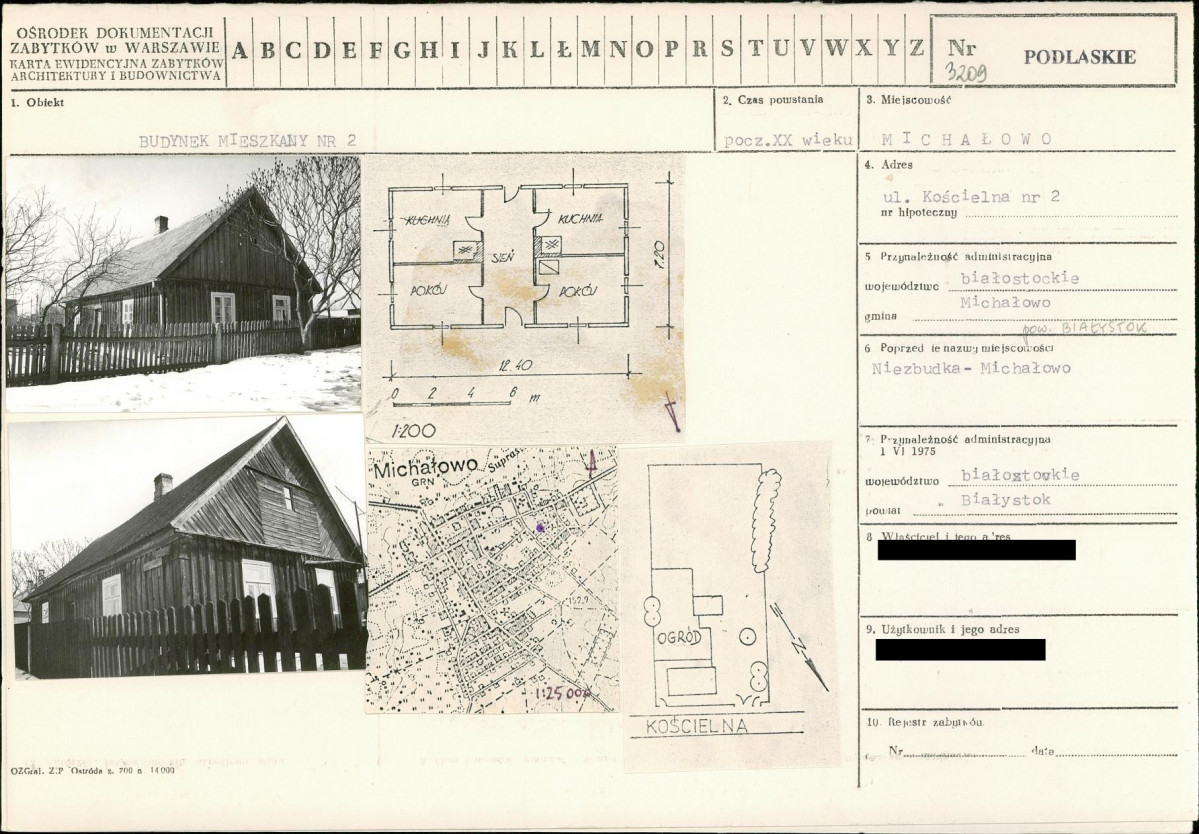 OŚRODEK DOKUMENTACJI
ZABYTKÓW w WARSZAWIE
KARTA EWIDENCYJNA ZABYTKÓW
ARCHITEKTURY I BUDOWNICTWA
A B C D E F G H I J K L Ł M N O P R S T U V W X Y Z
Nr
3209
PODLASKIE
1. Obiekt
BUDYNEK MIESZKANY NR 2
2. Czas powstania
pocz.XX wieku
3. Miejscowość
MICHAŁOWO
4. Adres
ul. Kościelna nr 2
nr hipoteczny
5 Przynależność administracyjna
województwo białostockie
Michałowo
gmina
pow. BIAŁYSTOK
6 Poprzednie nazwy miejscowości
Niezbudka- Michałowo
7. Przynależność administracyjna
1 VI 1975
województwo białostockie
powiat Białystok
8 Właściciel i jego adres
9. Użytkownik i jego adres
10. Rejestr zabytków
Nr data
KUCHNIA
KUCHNIA
SIEŃ
POKÓJ
POKÓJ
7.20
12.40
0 2 4 6 m
1:200
Michałowo
GRN
Supraśl
152,9
1:25 000
OGRÓD
N
KOŚCIELNA
OZGraf. Z.P. Ostróda z. 700 n 14000